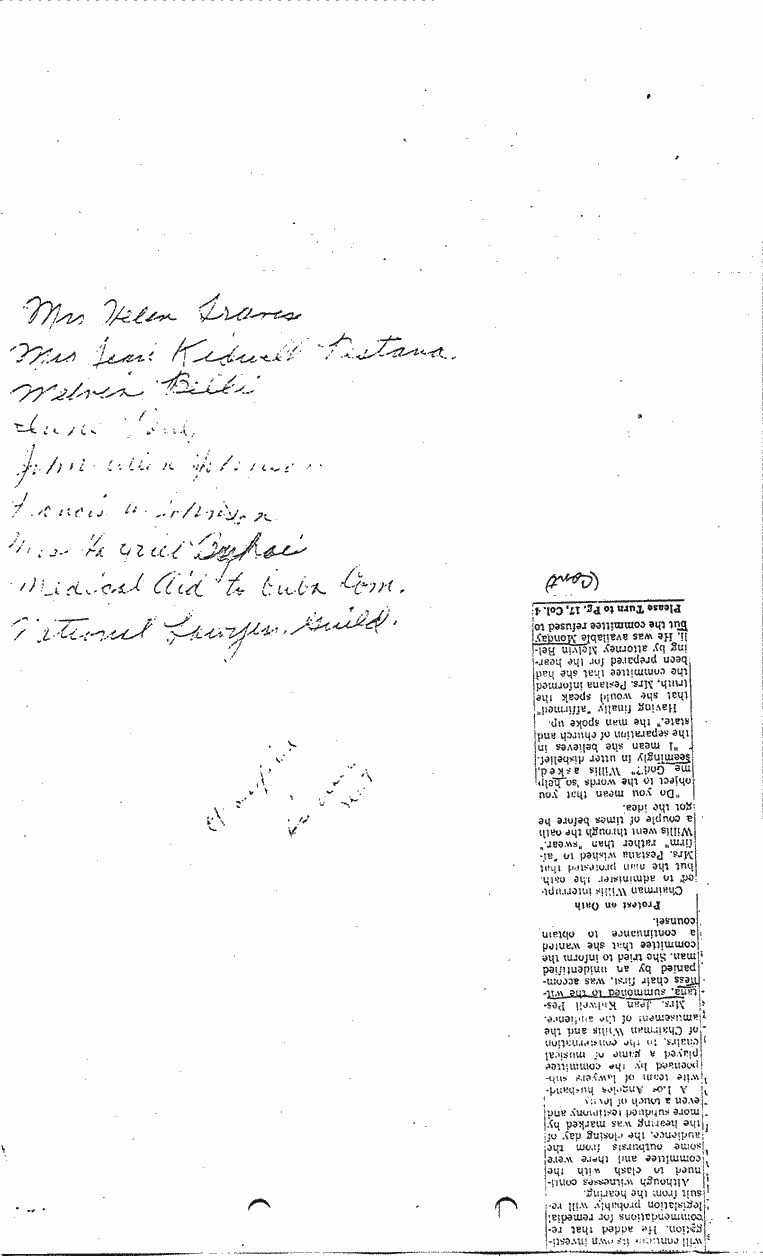 Mrs Helen Travis
Mrs Jean Kidwell Pestana.
Melvin Belli
John
Francis
Mrs
Medical Aid to Cuba Com.
National Lawyers Guild.
(Cont)
will continue its own investi-
gation. He added that re-
commendations for remedial
legislation probably will re-
sult from the hearing.
Although witnesses conti-
nued to clash with the
committee and there were
some outbursts from the
audience, the closing day of
the hearing was marked by
more subdued testimony and
even a touch of levity.
A Los Angeles husband-
wife team of lawyers sub-
poenaed by the committee
played a game of musical
chairs, to the consternation
of Chairman Willis and the
amusement of the audience.
Mrs. Jean Kidwell Pes-
tana, summoned to the wit-
ness chair first, was accom-
panied by an unidentified
man. She tried to inform the
committee that she wanted
a continuance to obtain
counsel.
Protest on Oath
Chairman Willis interrupt-
ed to administer the oath,
but the man protested that
Mrs. Pestana wished to "af-
firm" rather than "swear."
Willis went through the oath
a couple of times before he
got the idea.
"Do you mean that you
object to the words 'so help
me God?'" Willis asked,
seemingly in utter disbelief.
"I mean she believes in
the separation of church and
state," the man spoke up.
Having finally "affirmed"
that she would speak the
truth, Mrs. Pestana informed
the committee that she had
been prepared for the hear-
ing by attorney Melvin Bel-
li. He was available Monday
but the committee refused to
Please Turn to Pg. 17, Col. 4